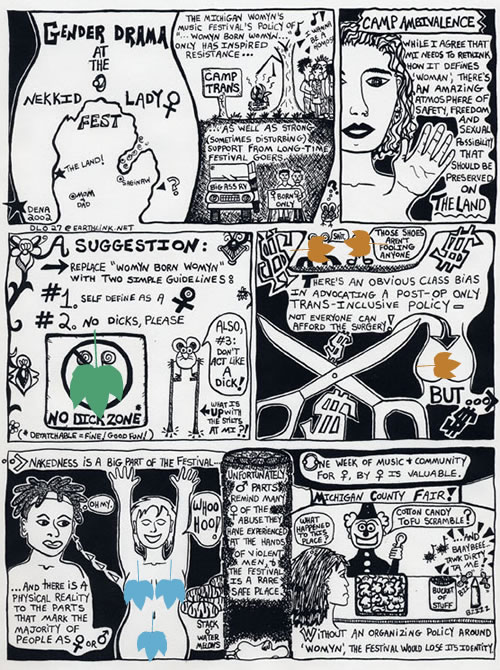 GENDER DRAMA
AT
THE
NEKKID LADY
FEST
THE LAND!
SAGINAW
MOM
& DAD
?
DENA
2002
DLO27@EARTHLINK.NET
THE MICHIGAN WOMYN'S
MUSIC FESTIVAL'S POLICY OF
"...WOMYN BORN WOMYN...
ONLY HAS INSPIRED
RESISTANCE...
I WANNA
BE A
HOMOS
CAMP
TRANS
...AS WELL AS STRONG
(SOMETIMES DISTURBING)
SUPPORT FROM LONG-TIME
FESTIVAL GOERS.
BIG ASS RV
BORN
ONLY
CAMP AMBIVALENCE
WHILE I AGREE THAT
MI NEEDS TO RETHINK
HOW IT DEFINES
'WOMAN', THERE'S
AN AMAZING
ATMOSPHERE OF
SAFETY, FREEDOM
AND
SEXUAL
POSSIBILITY
THAT
SHOULD BE
PRESERVED
ON
THE LAND
A SUGGESTION:
REPLACE "WOMYN BORN WOMYN"
WITH TWO SIMPLE GUIDELINES:
#1. SELF DEFINE AS A ♀
#2. NO DICKS, PLEASE
NO DICK ZONE*
(* DETATCHABLE = FINE / GOOD FUN!)
ALSO,
#3:
DON'T
ACT LIKE
A
DICK!
WHAT IS
UP WITH
THE STILTS
AT MI??
SHIT.
THOSE SHOES
AREN'T
FOOLING
ANYONE
THERE'S AN OBVIOUS CLASS BIAS
IN ADVOCATING A POST-OP ONLY
TRANS-INCLUSIVE POLICY –
NOT EVERYONE CAN
AFFORD THE SURGERY!
BUT...
NAKEDNESS IS A BIG PART OF THE FESTIVAL...
OH MY.
WHOO
HOO!
...AND THERE IS A
PHYSICAL REALITY
TO THE PARTS
THAT MARK THE
MAJORITY OF
PEOPLE AS ♀ OR ♂
STACK
O'
WATER
MELONS
UNFORTUNATELY
♂ PARTS
REMIND MANY
♀ OF THE
ABUSE THEY
HAVE EXPERIENCED
AT THE HANDS
OF VIOLENT
MEN, &
THE FESTIVAL
IS A RARE
SAFE PLACE.
ONE WEEK OF MUSIC & COMMUNITY
FOR ♀, BY ♀ IS VALUABLE.
MICHIGAN COUNTY FAIR!
WHAT
HAPPENED
TO THIS
PLACE?
COTTON CANDY
TOFU SCRAMBLE?
...AND
BAAYBEE...
TAWK DIRTY
TA ME
BUCKET
OF
STUFF
WITHOUT AN ORGANIZING POLICY AROUND
'WOMYN', THE FESTIVAL WOULD LOSE ITS IDENTITY